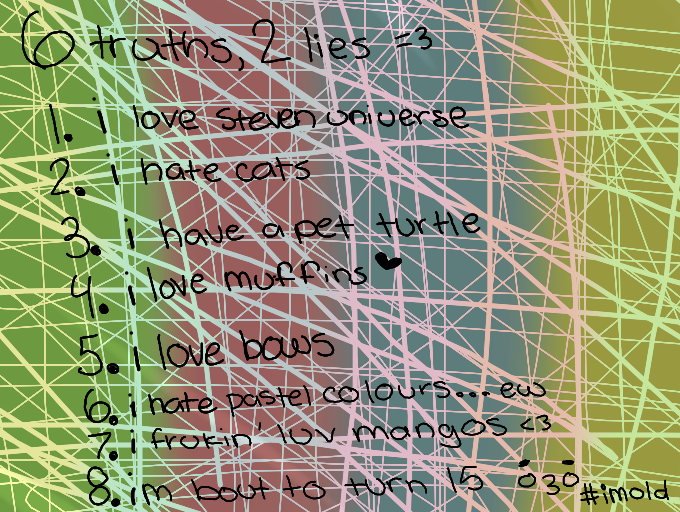 6 truths, 2 lies =3
1. i love steven universe
2. i hate cats
3. i have a pet turtle
4. i love muffins ♥
5. i love bows
6. i hate pastel colours... ew
7. i frukin' luv mangos <3
8. i'm bout to turn 15 030 #imold